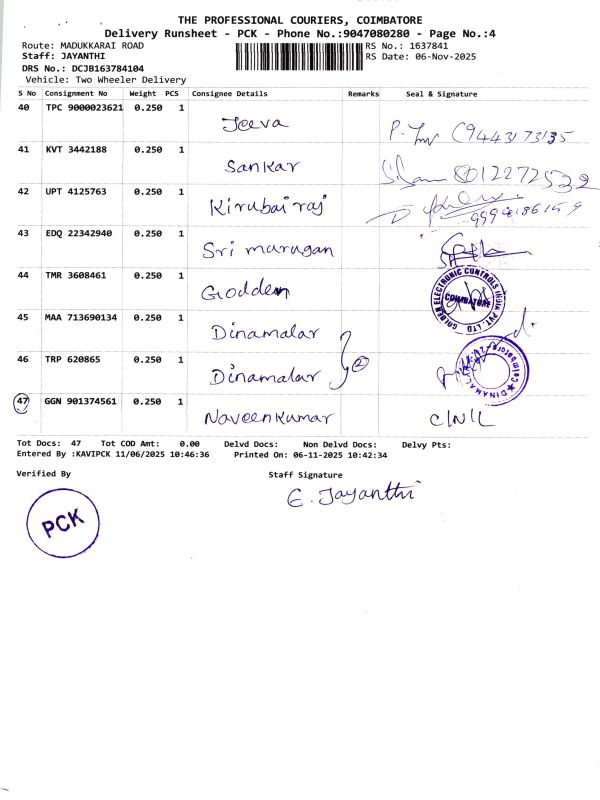 THE PROFESSIONAL COURIERS, COIMBATORE
Delivery Runsheet - PCK - Phone No.:9047080280 - Page No.:4
Route: MADUKKARAI ROAD RS No.: 1637841
Staff: JAYANTHI RS Date: 06-Nov-2025
DRS No.: DCJB163784104
Vehicle: Two Wheeler Delivery
S No Consignment No Weight PCS Consignee Details Remarks Seal & Signature
40 TPC 9000023621 0.250 1 Jeeva (9443173135
41 KVT 3442188 0.250 1 Sankar 8012272532
42 UPT 4125763 0.250 1 Kirubairaj
43 EDQ 22342940 0.250 1 Sri murugan
44 TMR 3608461 0.250 1 Godden GOLDEN ELECTRONIC CONTROLS INDIA PVT. LTD COIMBATORE
45 MAA 713690134 0.250 1 Dinamalar
46 TRP 620865 0.250 1 Dinamalar 2 DINAMALAR Coimbatore
47 GGN 901374561 0.250 1 Naveenkumar C/N/L
Tot Docs: 47 Tot COD Amt: 0.00 Delvd Docs: Non Delvd Docs: Delvy Pts:
Entered By :KAVIPCK 11/06/2025 10:46:36 Printed On: 06-11-2025 10:42:34
Verified By Staff Signature
E. Jayanthi
PCK